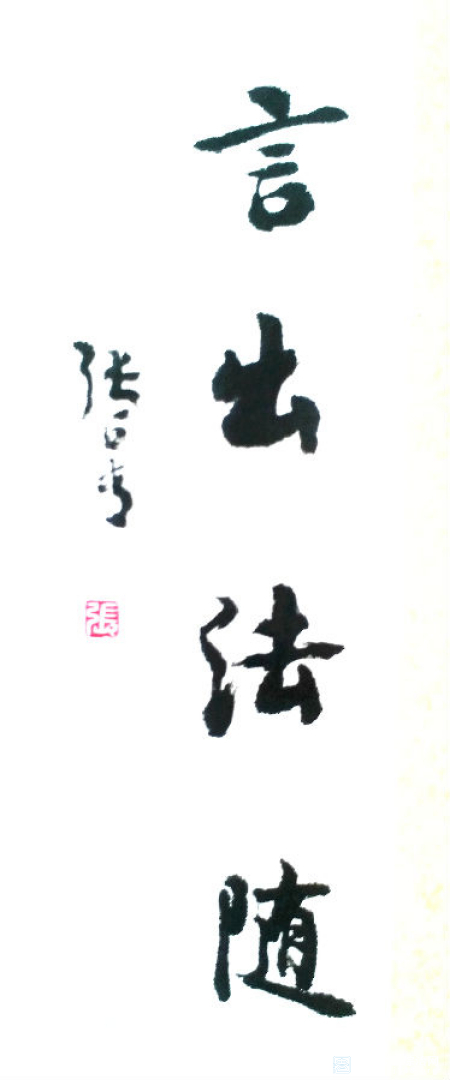 言出法随
张
張